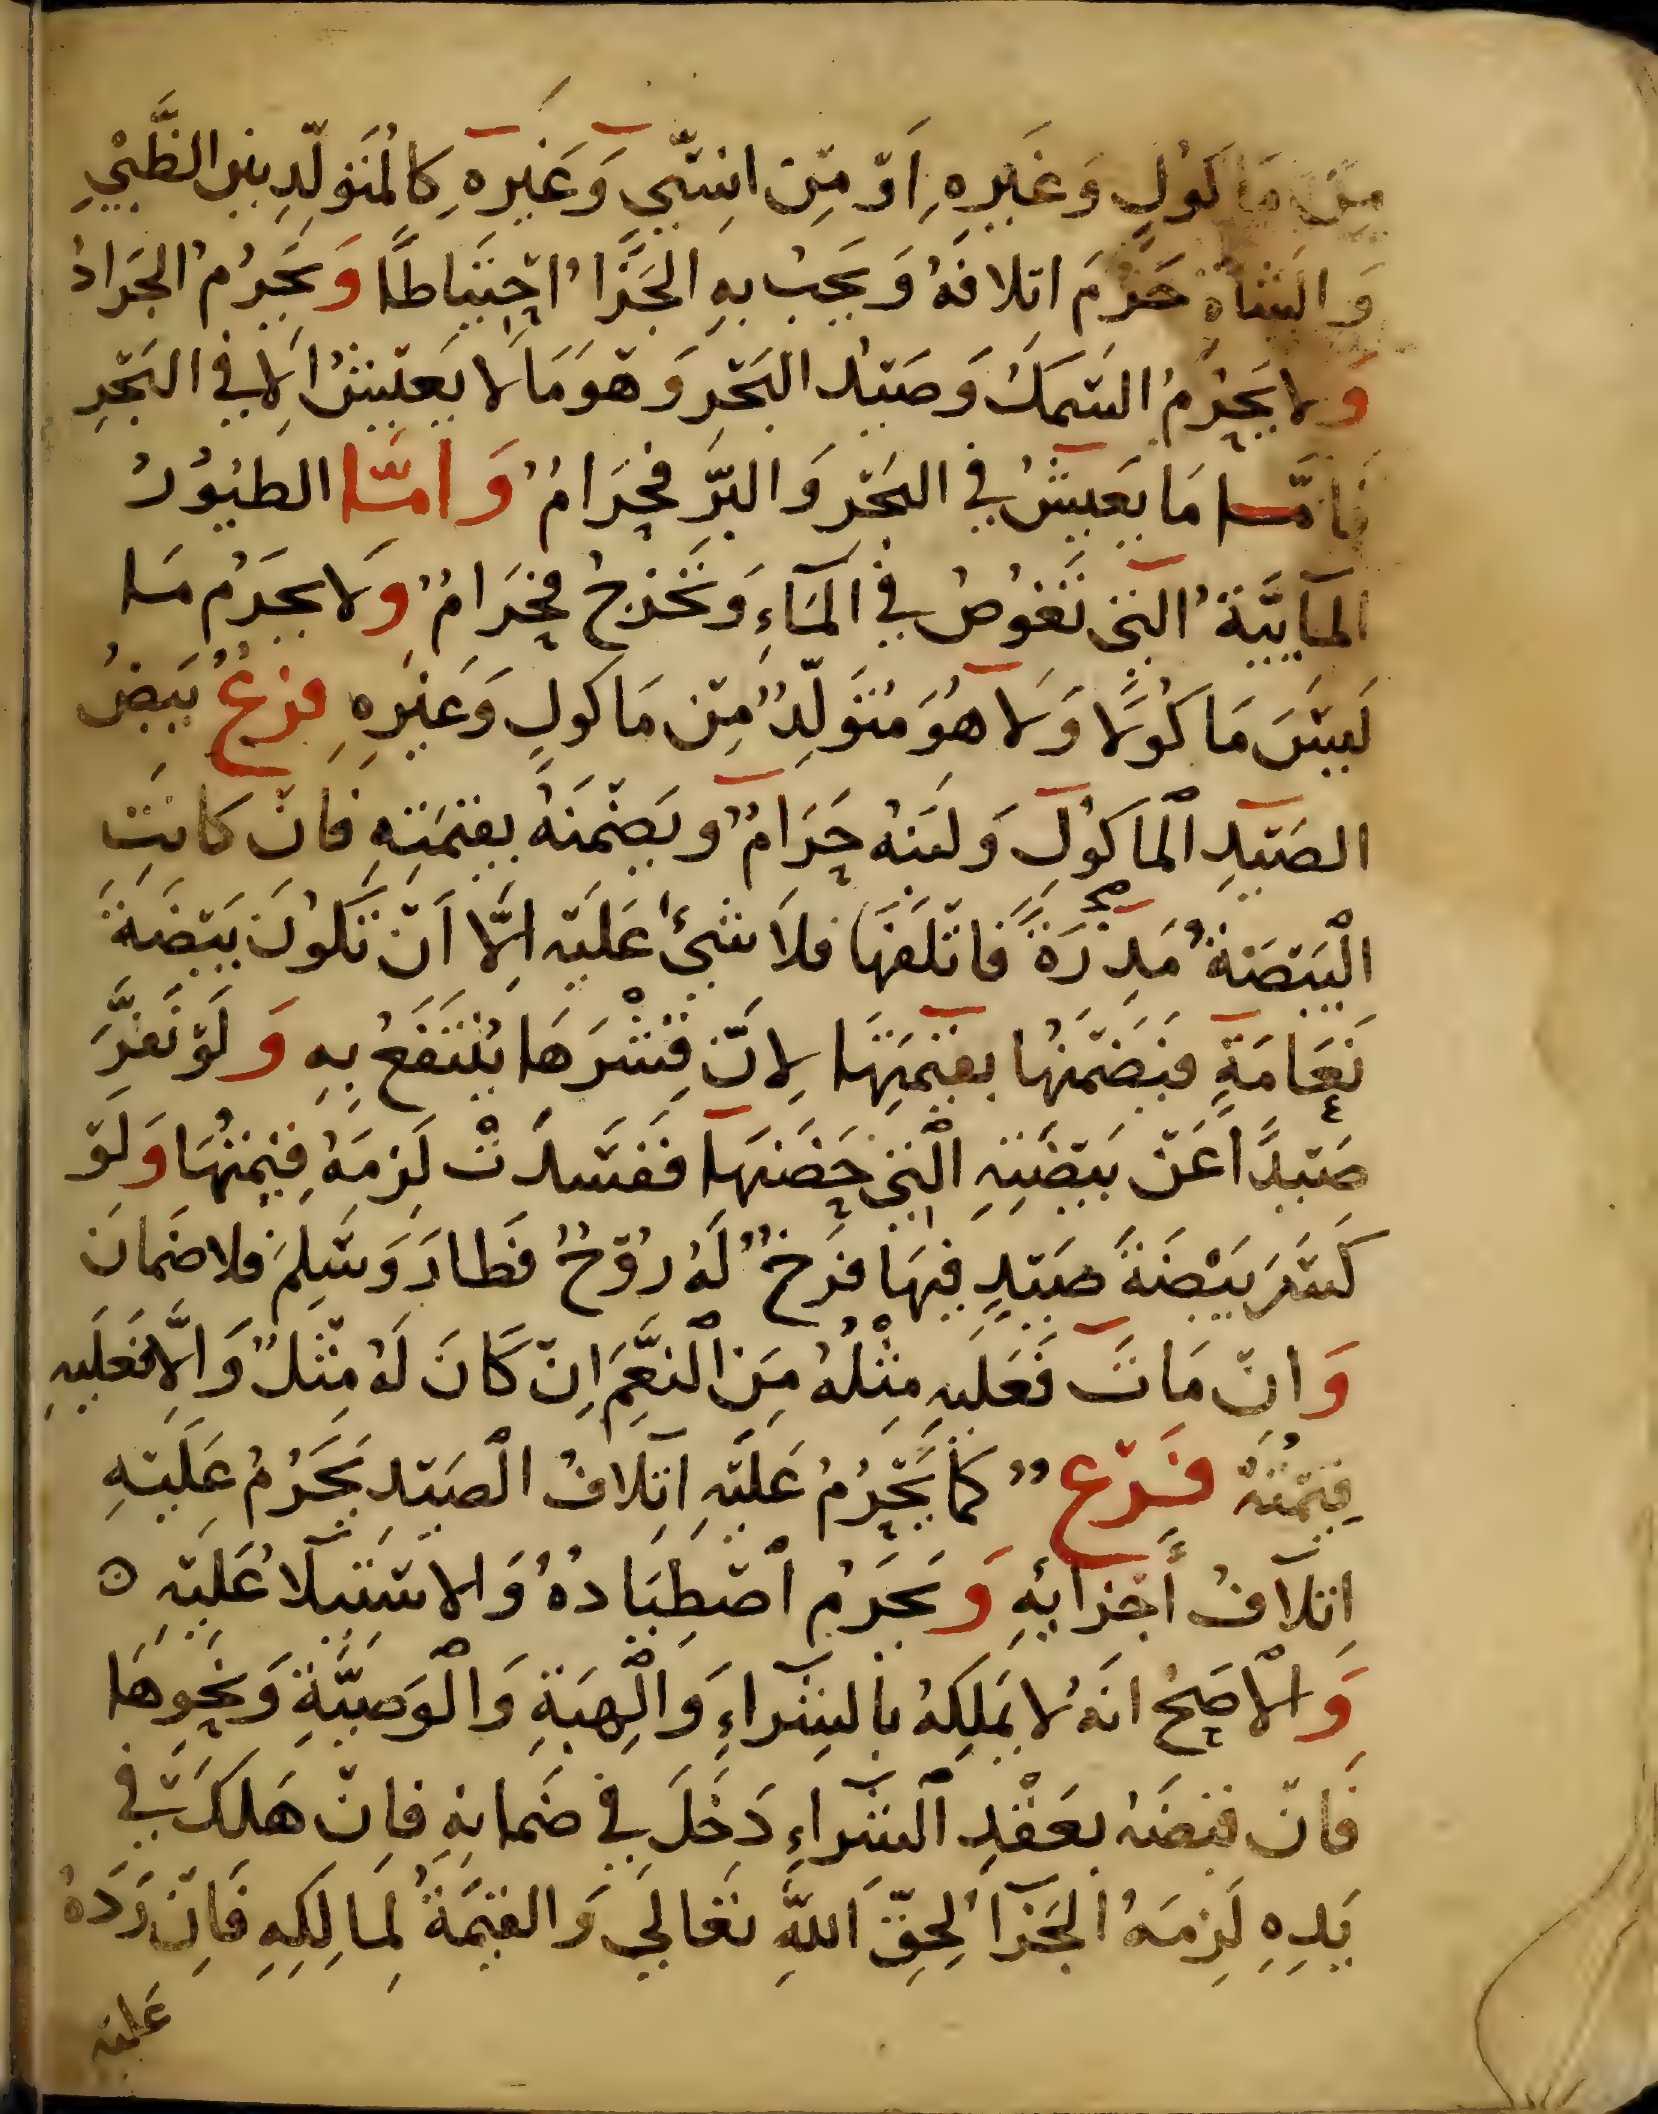 مِنْ مَاكُولٍ وَغَيْرِهِ اَوْ مِنْ اِنْسِيّ وَغَيْرِهِ كَالْمُتَوَلِّدِ بين الظَّبْيِ
وَالشاةِ حَرُمَ اتلافهُ وَيَجِبُ بِهِ الجَزَاُ احْتِيَاطًا وَيَحْرُمُ الجَرَادُ
وَلا يَحْرُمُ السَمَكُ وَصَيْدُ البَحْرِ وَهْوَ مَا لا يَعِيْشُ اِلا فِي البَحْرِ
فَامَّا مَا يَعِيشُ فِي البَحْرِ وَالبَرِّ فَحَرَامٌ وَامَّا الطيُوْرُ
المآيِيَّةُ التِي تَغُوْصُ فِي المَآءِ وَتَخْرُجُ فَحَرَامٌ وَلا يحرُمُ مَا
لَيْسَ مَاكُوْلًا وَلا هُوَ مُتَوَلِّدٌ مِنْ مَاكولٍ وَغَيْرِهِ فَرْعٌ بَيضُ
الصَيْدِ الْمَاكُوْلِ وَلبَنُه حَرَامٌ وَيَضْمَنهُ بِقِيْمَتِهِ فَانْ كَانَتِ
الْبَيْضَةُ مَذِرَةً فَاتْلَفَهَا فَلاَ شَيْئَ عَلَيْهِ اِلَّا اَنْ تَكُوْنَ بَيْضَةَ
نَعَامَةٍ فَيَضْمَنُهَا بِقِيْمَتِهَا لِانّ قِشْرَهَا يُنْتَفَعُ بِهِ وَلَوْ نَفَّرَ
صَيْدًا عَنْ بَيْضَتِهِ الْتِي حَضَنَهَا فَفَسَدَتْ لَزِمَهُ قِيْمَتُهَا وَلَوْ
كَسَرَ بَيْضَةَ صَيْدٍ فِيْهَا فَرخٌ لَهُ رُوْحٌ فَطَارَ وَسَلِمَ فَلا ضَمَانَ
وَانْ مَاتَ فَعَلَيهِ مِثْلُهُ مِنَ الْنعَمِ اِنْ كَانَ لَهُ مِثْلٌ وَاِلَّا فَعَلَيهِ
قِيْمَتُهُ فَرْعٌ كَمَا يَحْرُمُ عَلَيْهِ اتِلَافُ الْصَيْدِ يَحْرُمُ عَلَيْهِ
اِتلَافُ أَجْزَايِهِ وَيَحرُم اصْطِيَادهُ وَالاسْتِيْلاءُ عَلَيْهِ ٥
وَالْاصَحُ انَهُ لا يَملِكهُ بالشِرَآءِ وَالْهِبَةِ وَالْوَصِيَّةِ وَنَحْوِهَا
فَانْ قبضَهُ بِعَقْدِ الْشِرَآءِ دَخَلَ فِي ضَمَانِهِ فَاِنْ هَلَكَ فِي
يَدِهِ لَزِمَهُ الجَزَآُ لِحِقّ اللهِ تَعَالَي وَالقِيْمَةُ لِمَالِكِهِ فَاِنْ رَدَهُ
عَليْهِ